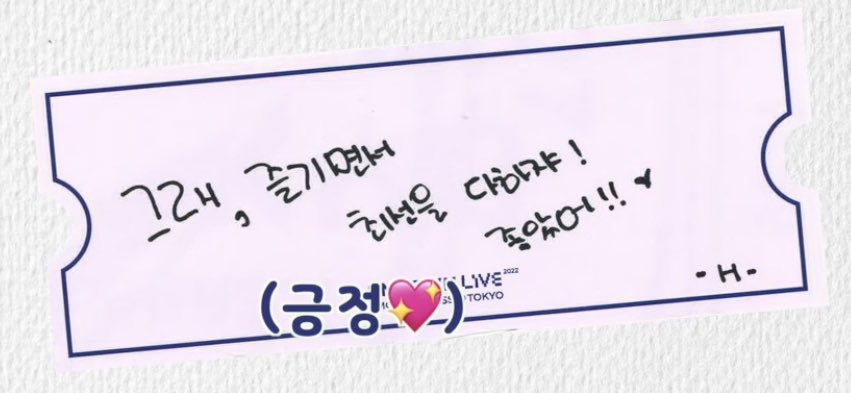 그래, 즐기면서
최선을 다하자!
좋았어!! ♥
- H -
LIVE 2022
TOKYO
(긍정💖)